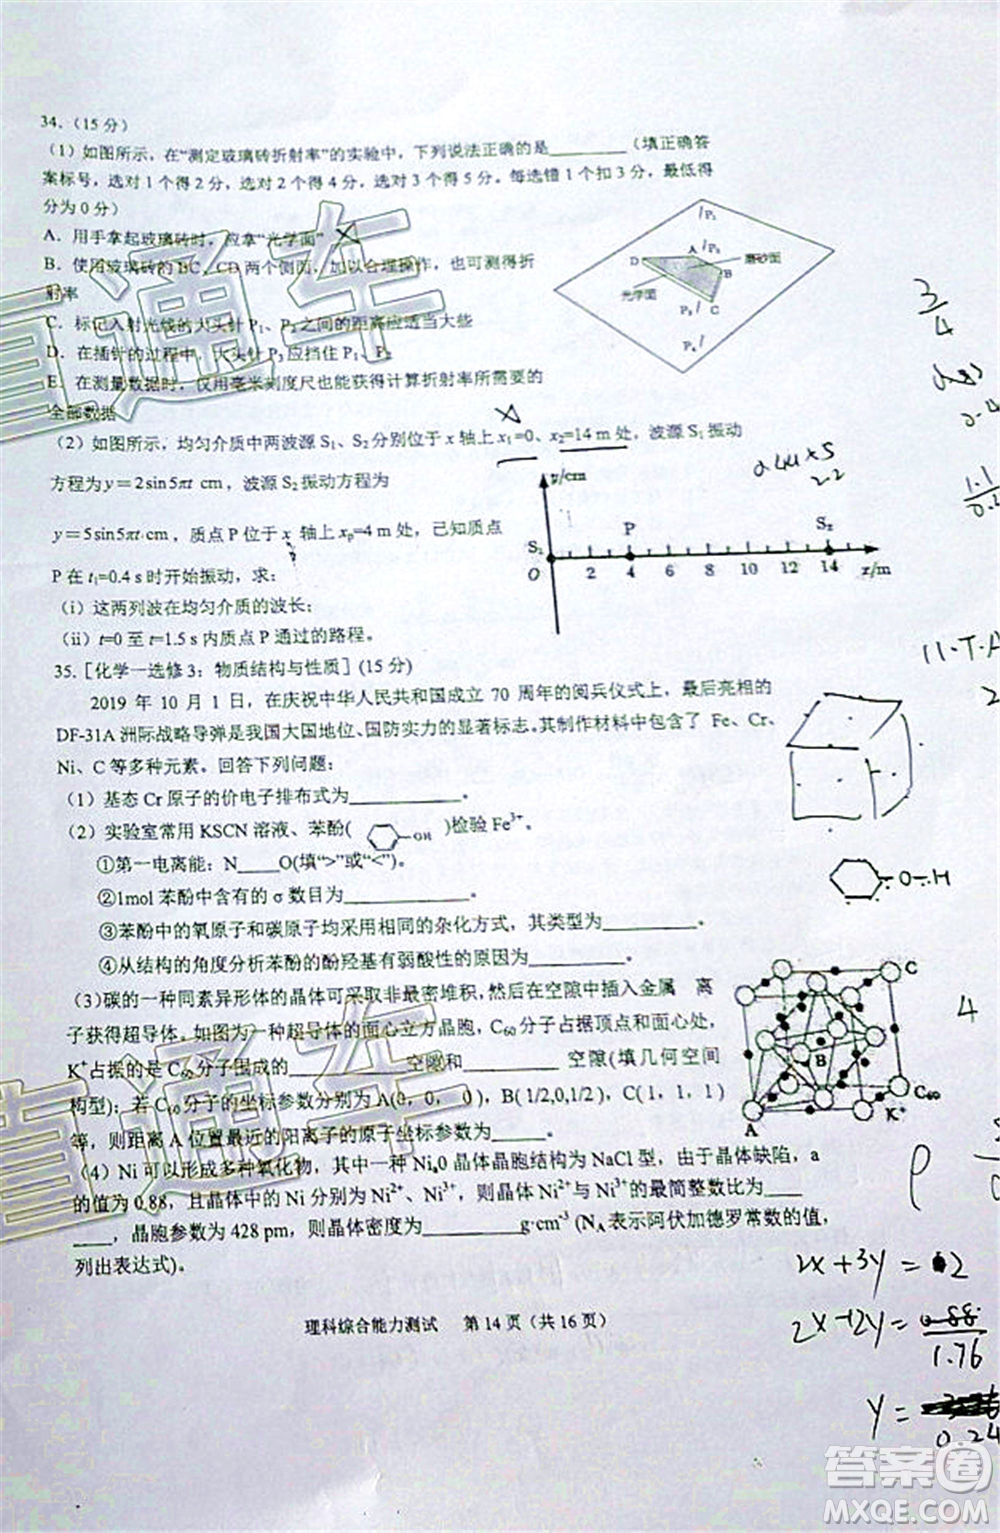 34.（15 分）
（1）如图所示，在“测定玻璃砖折射率”的实验中，下列说法正确的是________（填正确答
案标号，选对 1 个得 2 分，选对 2 个得 4 分，选对 3 个得 5 分。每选错 1 个扣 3 分，最低得
分为 0 分）
A．用手拿起玻璃砖时，应拿“光学面”
B．使用玻璃砖的 BC、CD 两个侧面，加以合理操作，也可测得折
射率
C．标记入射光线的大头针 P₁、P₂ 之间的距离应适当大些
D．在插针的过程中，大头针 P₃ 应挡住 P₁、P₂
E．在测量数据时，仅用毫米刻度尺也能获得计算折射率所需的
全部数据
P₁
P₂
A
D
B
磨砂面
光学面
P₃
C
P₄
（2）如图所示，均匀介质中两波源 S₁、S₂ 分别位于 x 轴上 x₁=0、x₂=14 m 处，波源 S₁ 振动
方程为 y＝2sin5πt cm，波源 S₂ 振动方程为
y＝5sin5πt cm，质点 P 位于 x 轴上 xₚ=4 m 处，已知质点
P 在 t₁=0.4 s 时开始振动，求：
（i）这两列波在均匀介质的波长；
（ii）t=0 至 t=1.5 s 内质点 P 通过的路程。
y/cm
S₁
P
S₂
O 2 4 6 8 10 12 14 x/m
35.［化学一选修 3：物质结构与性质］(15 分)
2019 年 10 月 1 日，在庆祝中华人民共和国成立 70 周年的阅兵仪式上，最后亮相的
DF-31A 洲际战略导弹是我国大国地位、国防实力的显著标志。其制作材料中包含了 Fe、Cr、
Ni、C 等多种元素。回答下列问题：
（1）基态 Cr 原子的价电子排布式为__________。
（2）实验室常用 KSCN 溶液、苯酚( OH )检验 Fe³⁺。
①第一电离能：N____O(填“>”或“<”)。
②1mol 苯酚中含有的 σ 数目为________
③苯酚中的氧原子和碳原子均采用相同的杂化方式，其类型为________。
④从结构的角度分析苯酚的酚羟基有弱酸性的原因为________。
（3）碳的一种同素异形体的晶体可采取非最密堆积，然后在空隙中插入金属 离
子获得超导体。如图为一种超导体的面心立方晶胞，C₆₀ 分子占据顶点和面心处，
K⁺占据的是 C₆₀ 分子围成的________空隙和________空隙(填几何空间
构型)；若 C₆₀ 分子的坐标参数分别为 A(0，0， 0)，B( 1/2,0,1/2)，C(1，1，1)
等，则距离 A 位置最近的阳离子的原子坐标参数为_____。
（4）Ni 可以形成多种氧化物，其中一种 NiₐO 晶体晶胞结构为 NaCl 型，由于晶体缺陷，a
的值为 0.88，且晶体中的 Ni 分别为 Ni²⁺、Ni³⁺，则晶体中 Ni²⁺与 Ni³⁺的最简整数比为____
____，晶胞参数为 428 pm，则晶体密度为________g·cm⁻³ (Nₐ 表示阿伏加德罗常数的值，
列出表达式)。
C
B
A
K⁺
C₆₀
3/4
2.2
1.1
O-H
4
ρ
2x+3y=2
x+y=0.88
1.76
y=
0.24
理科综合能力测试 第 14 页（共 16 页）
直通车
直通车
答案圈
MXQE.COM